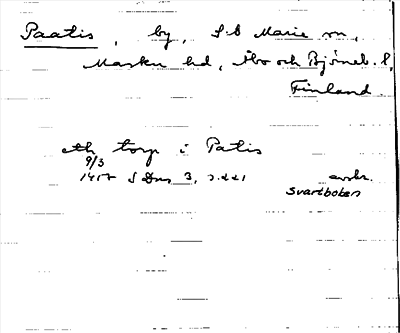 Paatis, by, S:t Marie sn,
Masku hd, Åbo och Björneb. l,
Finland.
ett torp i Patis
9/3
1457 SDns 3, s.221 avskr.
Svartboken